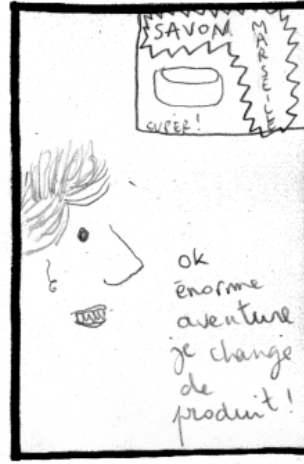 SAVON
MARSEILLE
SUPER!
ok
énorme
aventure
je change
de
produit!